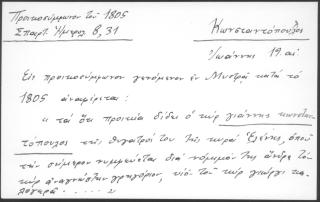 Προικοσύμφωνον τοῦ 1805
Σπαρτ. Ἡμερολ. Β, 31
Κωνσταντόπουλος
Ἰωάννης 19 αἰ
Εἰς προικοσύμφωνον γενόμενον ἐν Μυστρᾷ κατά τό
1805 ἀναφέρεται:
« τα ὅτι προικία δίδει ὁ κύρ γιάννης κωνσταν
τόπουλος τῆς θυγατρός του τῆς κυρᾶ Ἑλένης, ὁποῦ
τήν σήμερον νυμφεύεται διά νόμιμον της ἄνδρα τόν
κύρ ἀναγνώστην γρηγόριον, υἱό τοῦ κύρ γιώργι κα
λογερᾶ . . . . . »